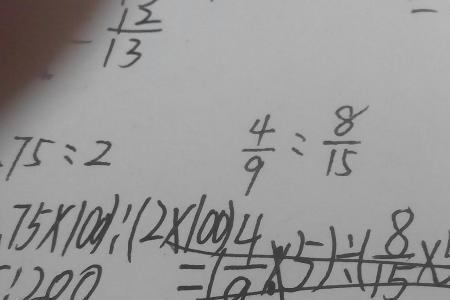 12/13
.75:2    4/9 : 8/15
.75×100):(2×100)    =(4/9×5):(8/15×
:200